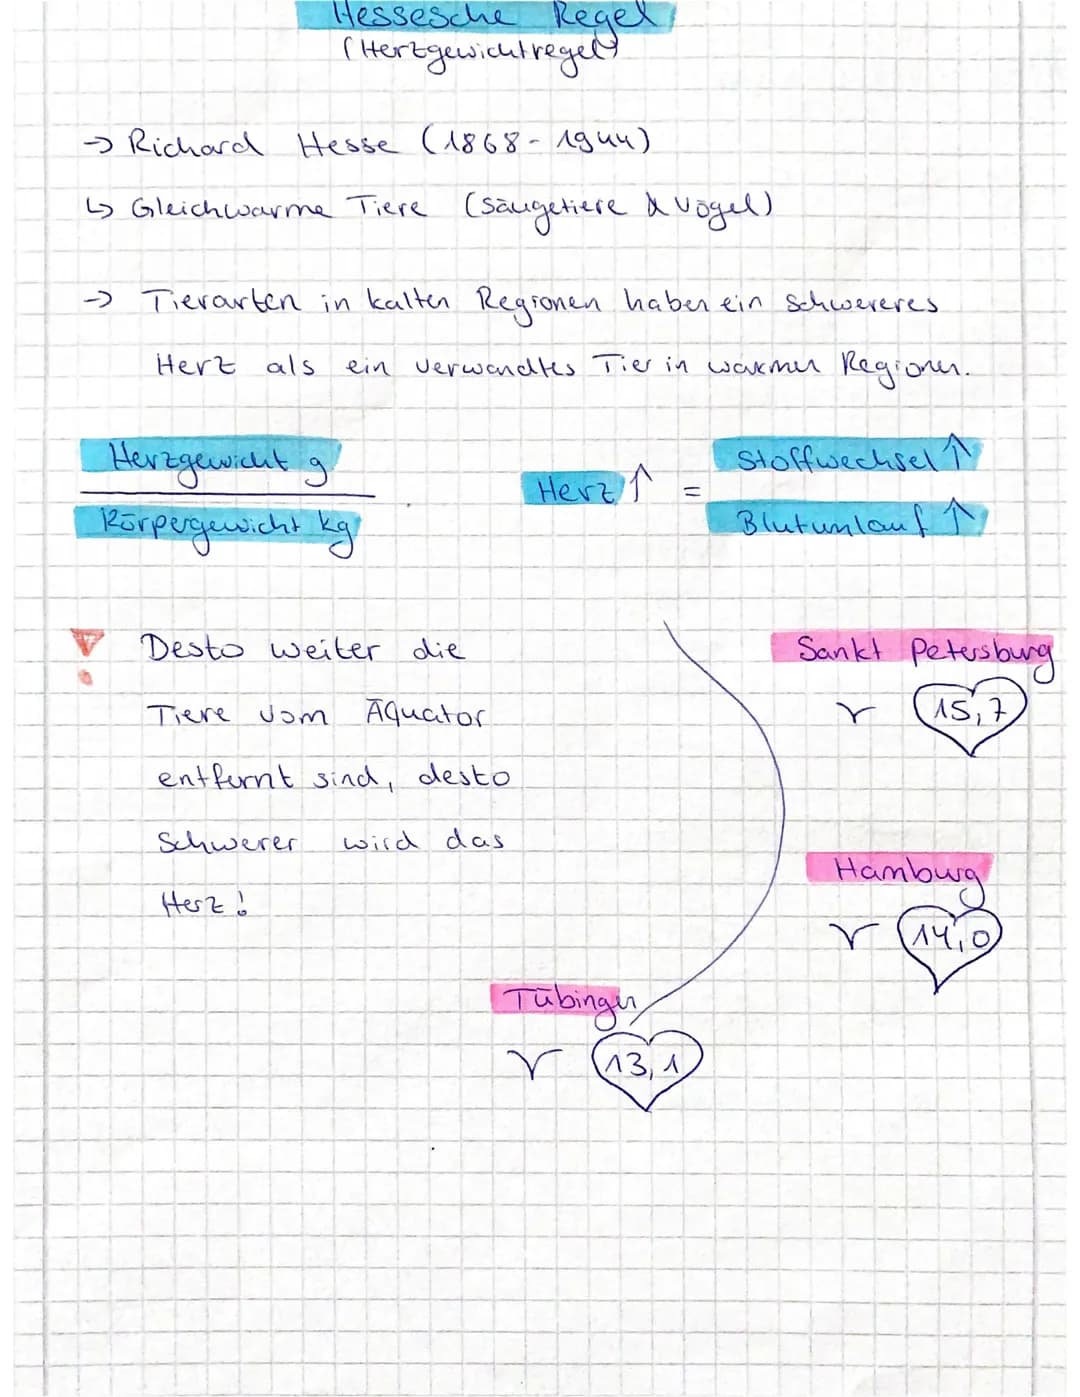 Hessesche Regel
(Hertzgewichtregel)
→ Richard Hesse (1868-1944)
↳ Gleichwarme Tiere (Säugetiere & Vögel)
→ Tierarten in kalten Regionen haben ein schwereres
Herz als ein verwandtes Tier in warmen Regionen.
Herzgewicht g
Körpergewicht kg
Herz ↑ =
Stoffwechsel ↑
Blutumlauf ↑
Desto weiter die
Tiere vom Äquator
entfernt sind, desto
Schwerer wird das
Herz!
Sankt Petersburg
15,7
Hamburg
14,0
Tübingen
13,1